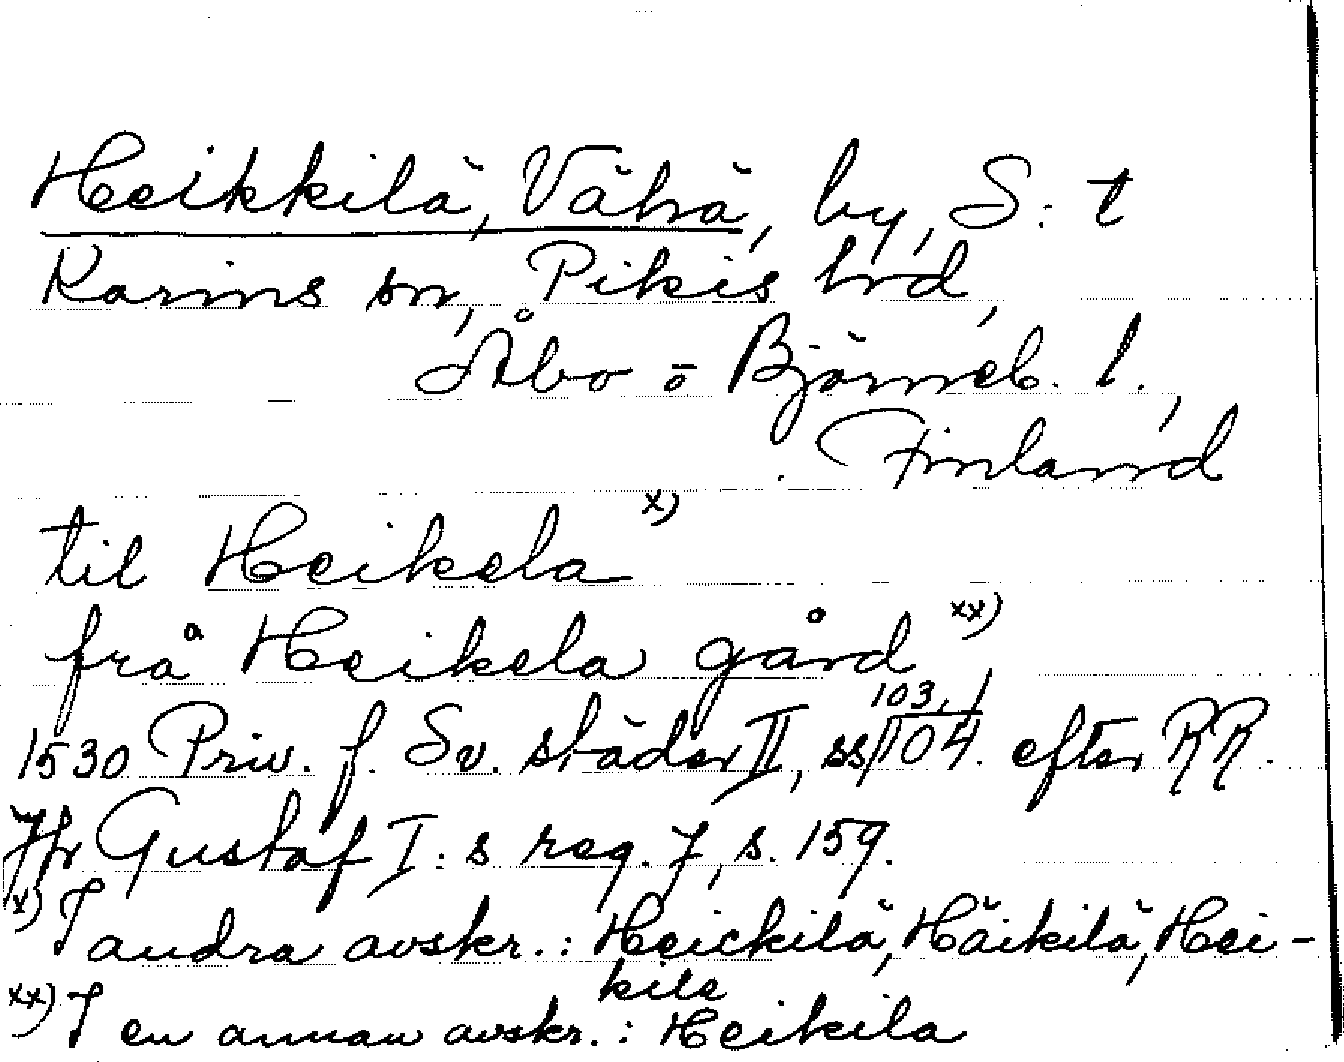 Heikkilä, Vähä, by, S:t
Karins sn, Pikis hrd,
Åbo o Björneb. l.,
Finland
til Heikela x)
frå Heikela gård xx)
103, 1
1530 Priv. f. Sv. städer II, ss/104. efter RR.
Jfr Gustaf I:s reg. 7, s. 159.
x) I andra avskr.: Heickilä, Häikilä, Hei-
kile
xx) I en annan avskr.: Heikila